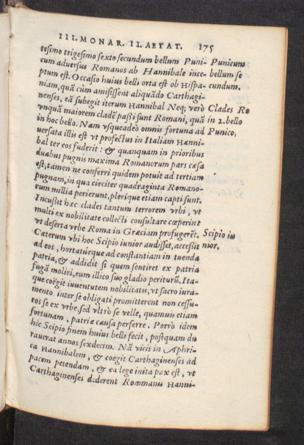 III. MONAR. II. AETAT. 175
tesimo trigesimo sexto secundum bellum Puni-
cum aduersus Romanos ab Hannibale ince-
ptum est. Occasio huius belli orta est ob Hispa-
niam, quã cùm amisissent aliquãdo Carthagi-
nenses, eã subegit iterum Hannibal. Neq; verò
vnquã maiorem cladē passi sunt Romani, quã
in hoc bello. Nam vsqueadeò omnis fortuna ad
versata illis est vt profectus in Italiam Hanni-
bal ter eos fuderit: & quanquam in prioribus
duabus pugnis maxima Romanorum pars cæsa
est, tamen ne conferri quidem potuit ad tertiam
pugnam, in qua circiter quadraginta Romano-
rum millia perierunt, plerique etiam capti sunt.
Incussit hæc clades tantum terrorem vrbi, vt
multi ex nobilitate collecti consultare cœperint
vt deserta vrbe Roma in Græciam profugerēt.
Cæterum vbi hoc Scipio iunior audisset, accessit
ad eos, hortatúsque ad constantiam in tuenda
patria, & addidit si quem sentiret ex patria
fugã moliri, eum illico suo gladio periturũ. Ita-
que coëgit iuuentutem nobilitatis, vt sacro iura-
mento inter se obligati promitterent non cessu-
ros se ex vrbe, sed vltrò se velle, quamuis etiam
fortunam, patriæ causa perferre. Porrò idem
hic Scipio finem huius belli fecit, postquam du
rauerat annos sexdecim. Nã vicit in Aphri-
ca Hannibalem, & coëgit Carthaginenses ad
pacem petendam, & ea lege inita pax est, vt
Carthaginenses dederent Romanis Hanni-
Punicum
bellum se
cundum.
Clades Ro
in 2. bello
Punico.
Scipio iu
nior.